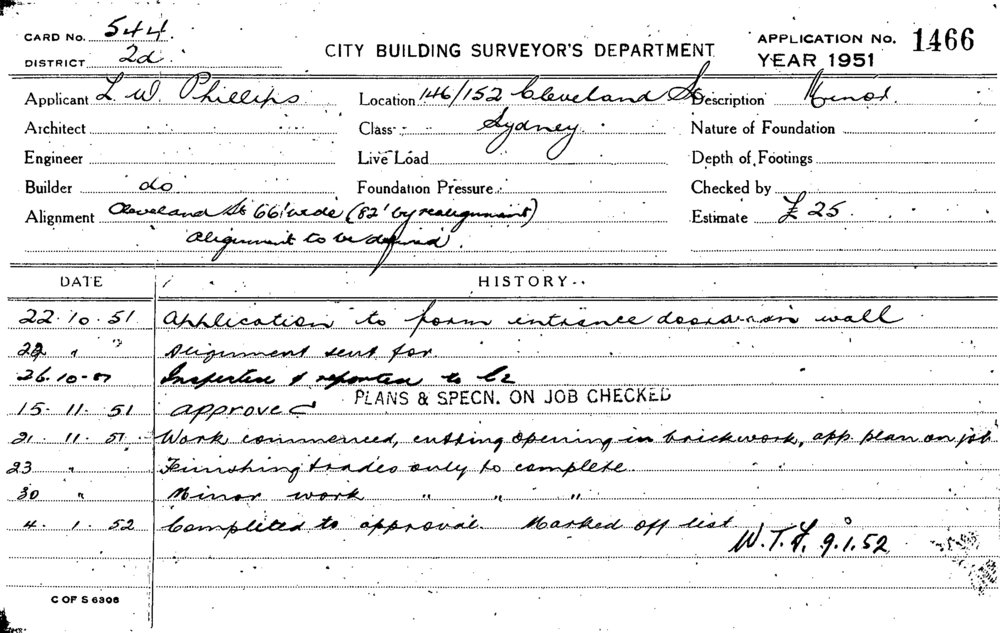 CARD No. 544.
DISTRICT 2d.
CITY BUILDING SURVEYOR'S DEPARTMENT
APPLICATION No. 1466
YEAR 1951
Applicant L. W. Phillips
Location 146/152 Cleveland St
Description Minor.
Architect
Class Sydney.
Nature of Foundation
Engineer
Live Load
Depth of Footings
Builder do
Foundation Pressure
Checked by
Alignment Cleveland St 66' wide (82' by realignment)
Alignment to be defined.
Estimate £25.
DATE HISTORY
22.10.51 Application to form entrance door in wall
22 " " Alignment sent for.
26.10.51 Inspected & reported to
15.11.51 Approved PLANS & SPECN. ON JOB CHECKED
21.11.51 Work commenced, cutting opening in brickwork, app plan on job
23 " Finishing trades only to complete.
30 " Minor work " " "
4.1.52 Completed to approval. Marked off list
W.T.F. 9.1.52
C OF S 6306